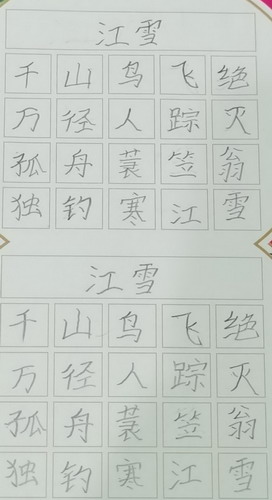 江雪
千山鸟飞绝
万径人踪灭
孤舟蓑笠翁
独钓寒江雪
江雪
千山鸟飞绝
万径人踪灭
孤舟蓑笠翁
独钓寒江雪